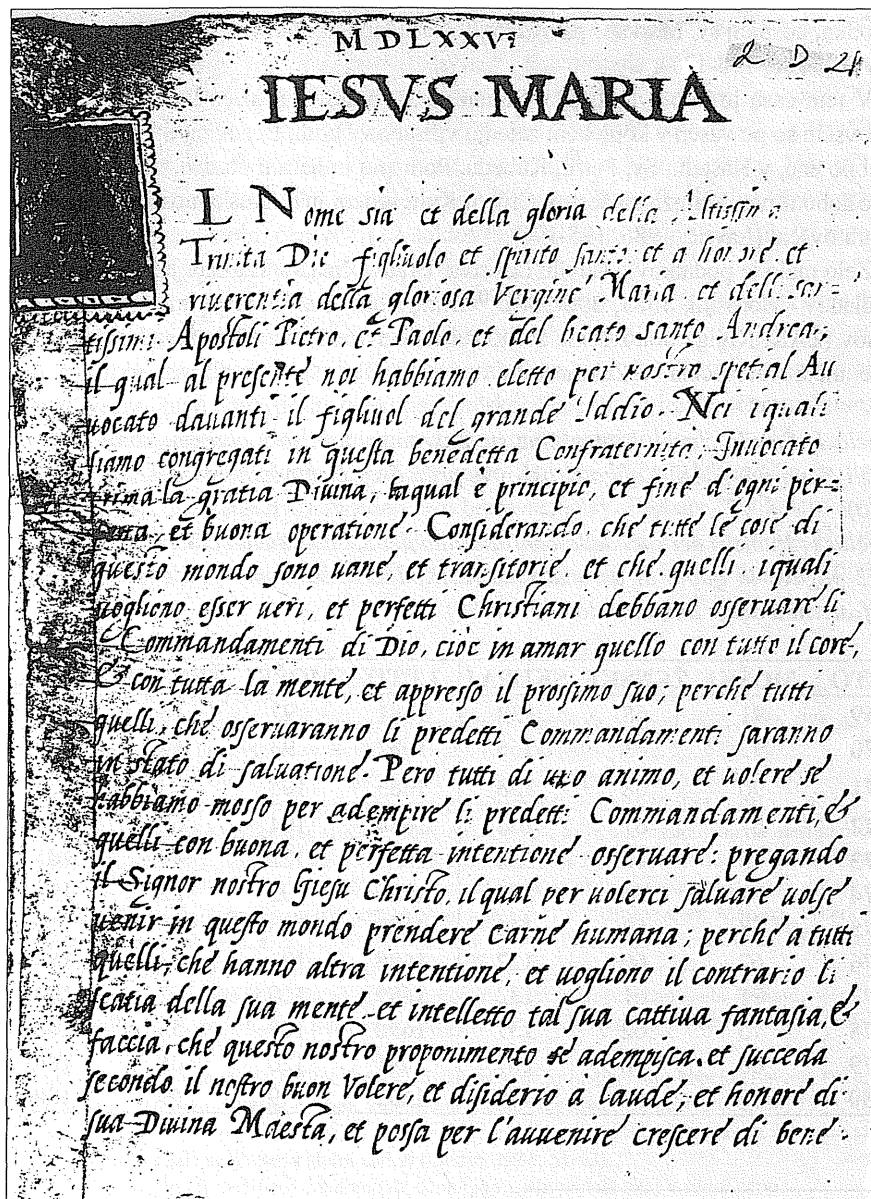 MDLXXVI
2 D 21
IESVS MARIA
L Nome sia et della gloria della Altissima
Trinita Dio figliuolo et spirito santo et a honore et
riuerentia della gloriosa Vergine Maria et delli san-
tissimi Apostoli Pietro, et Paolo, et del beato santo Andrea,
il qual al presente noi habbiamo eletto per nostro spetial Au
uocato dauanti il figliuol del grande Iddio. Nei i quali
siamo congregati in questa benedetta Confraternita, Inuocato
prima la gratia Diuina, laqual è principio, et fine d'ogni per-
fetta, et buona operatione. Considerando, che tutte le cose di
questo mondo sono uane, et transitorie, et che quelli, i quali
uogliono esser ueri, et perfetti Christiani debbano osseruare li
Commandamenti di Dio, cioè in amar quello con tutto il core,
& con tutta la mente, et appresso il prossimo suo; perche tutti
quelli, che osseruaranno li predetti Commandamenti saranno
in stato di saluatione. Pero tutti di uno animo, et uolere se
habbiamo mosso per adempire li predetti Commandamenti, &
quelli con buona, et perfetta intentione osseruare: pregando
il Signor nostro Giesu Christo, il qual per uolerci saluare uolse
uenir in questo mondo prendere carne humana; perche a tutti
quelli, che hanno altra intentione, et uogliono il contrario li
scatia della sua mente, et intelletto tal sua cattiua fantasia, &
faccia, che questo nostro proponimento se adempisca, et succeda
secondo il nostro buon Volere, et disiderio à laude, et honore di
sua Diuina Maesta, et possa per l'auuenire crescere di bene